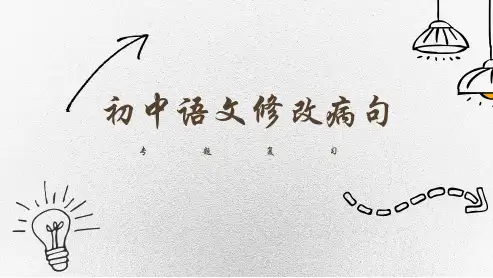 初中语文修改病句
专题复习